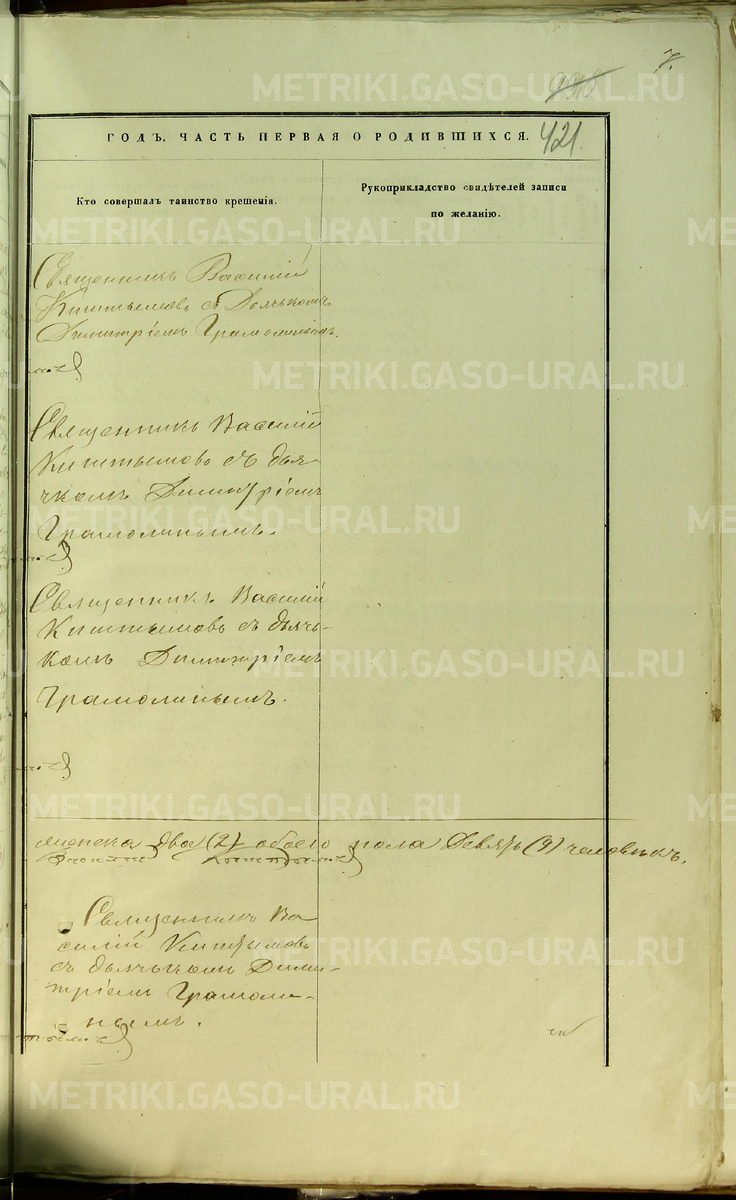 7.
421.
ГОДЪ, ЧАСТЬ ПЕРВАЯ О РОДИВШИХСЯ.
Кто совершалъ таинство крещенія.
Рукоприкладство свидѣтелей записи
по желанію.
Священникъ Василій
Киштымовъ съ Дьячкомъ
Димитріемъ Грамолинымъ.
Священникъ Василій
Киштымовъ съ дья-
чкомъ Димитріемъ
Грамолинымъ.
Священникъ Василій
Киштымовъ съ дьячь-
комъ Димитріемъ
Грамолинымъ.
женска два (2) обоего пола Девять (9) человѣкъ.
Священникъ Ва-
силій Киштымовъ
съ дьячькомъ Дими-
тріемъ Грамоли-
нымъ.
METRIKI.GASO-URAL.RU